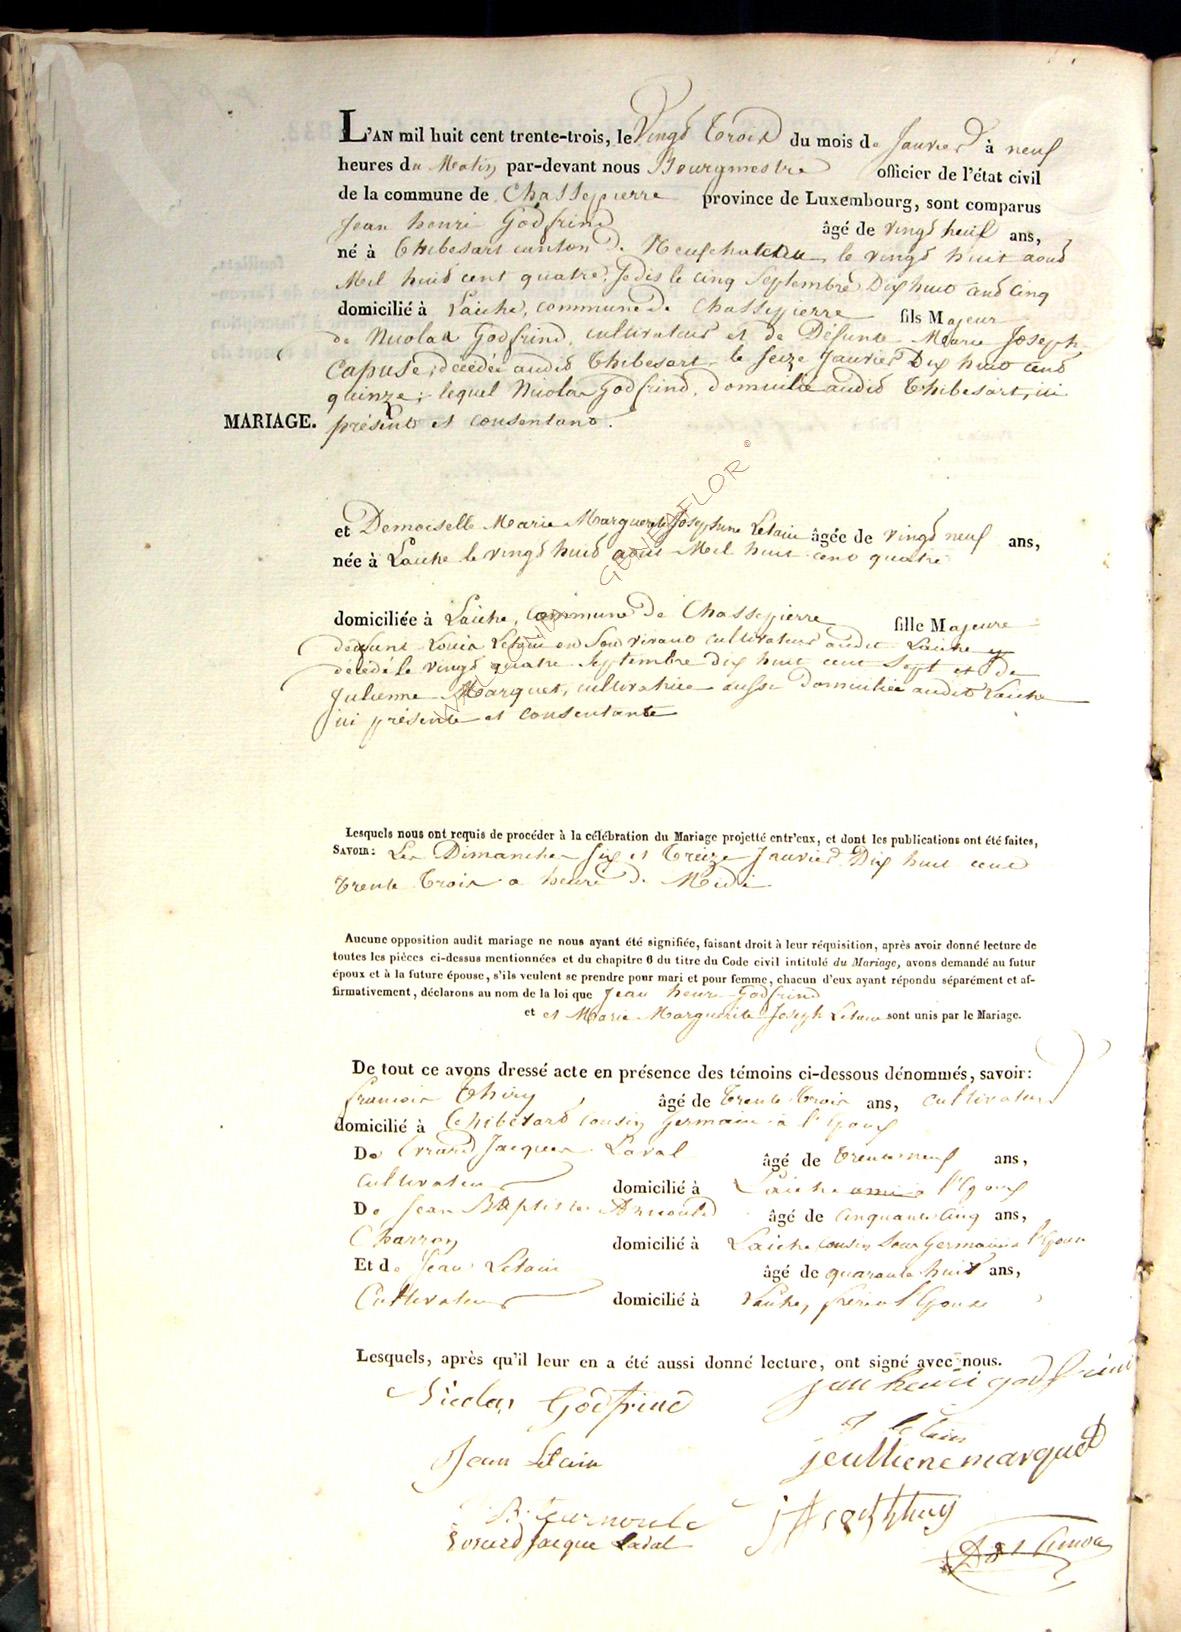 L'AN mil huit cent trente-trois, le Vingt Trois du mois de Janvier à neuf
heures du Matin par-devant nous Bourgmestre officier de l'état civil
de la commune de Chassepierre province de Luxembourg, sont comparus
Jean henri Godfrind âgé de vingt heuf ans,
né à Thibesart canton de Neufchateau, le vingt huit aout
Mil huit cent quatre, Je dis le cinq Septembre Dix huit cent cinq
domicilié à Laiche, commune de Chassepierre fils Majeur
de Nicolas Godfrind, cultivateur et de Défunte Marie Joseph
Capuse, décédée audit Thibesart le seize Janvier Dix huit cent
quinze; lequel Nicolas Godfrind, domicilié audit Thibesart, ici
MARIAGE. présent et consentant.
et Demoiselle Marie Marguerite Josephine Letain âgée de vingt neuf ans,
née à Laiche le vingt huit aout Mil huit cent quatre
domiciliée à Laiche, commune de Chassepierre fille Majeure
de défunt Louis Letain en Son vivant cultivateur audit Laiche y
décédé le vingt quatre Septembre dix huit cent Sept et de
Julienne Marquet, cultivatrice aussi domiciliée audit Laiche
ici présente et consentante
WALLONIA GENEAFLOR ©
Lesquels nous ont requis de procéder à la célébration du Mariage projetté entr'eux, et dont les publications ont été faites,
SAVOIR: Les Dimanches six et Treize Janvier Dix huit cent
Trente Trois a heure de Midi
Aucune opposition audit mariage ne nous ayant été signifiée, faisant droit à leur réquisition, après avoir donné lecture de
toutes les pièces ci-dessus mentionnées et du chapitre 6 du titre du Code civil intitulé du Mariage, avons demandé au futur
époux et à la future épouse, s'ils veulent se prendre pour mari et pour femme, chacun d'eux ayant répondu séparément et af-
firmativement, déclarons au nom de la loi que Jean henri Godfrind
et et Marie Marguerite Joseph Letain sont unis par le Mariage.
De tout ce avons dressé acte en présence des témoins ci-dessous dénommés, savoir:
francois Thiry, âgé de Trente Trois ans, cultivateur
domicilié à Thibesard cousin Germain à l'Epoux
De Evrard Jacques Laval âgé de trente neuf ans,
cultivateur domicilié à Laiche ami a l'Epoux
De Jean Baptiste Arnould âgé de cinquante cinq ans,
Charron domicilié à Laiche cousin Sous Germain a l'Epouse
Et de Jean Letain âgé de quarante huit ans,
Cultivateur domicilié à Laiche, frère a l'Epouse
Lesquels, après qu'il leur en a été aussi donné lecture, ont signé avec nous.
Nicolas Godfrind jean henri godfrind
letain
Jean Letain jeulliene marquet
Evrard Jacque Laval